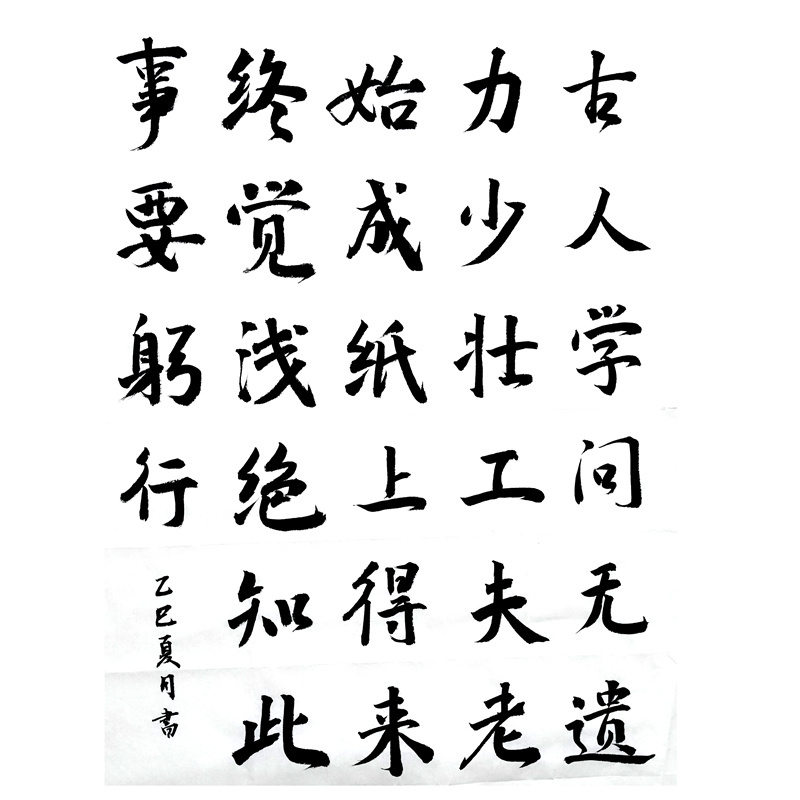 古人学问无遗
力少壮工夫老
始成纸上得来
终觉浅绝知此
事要躬行
乙巳夏月书